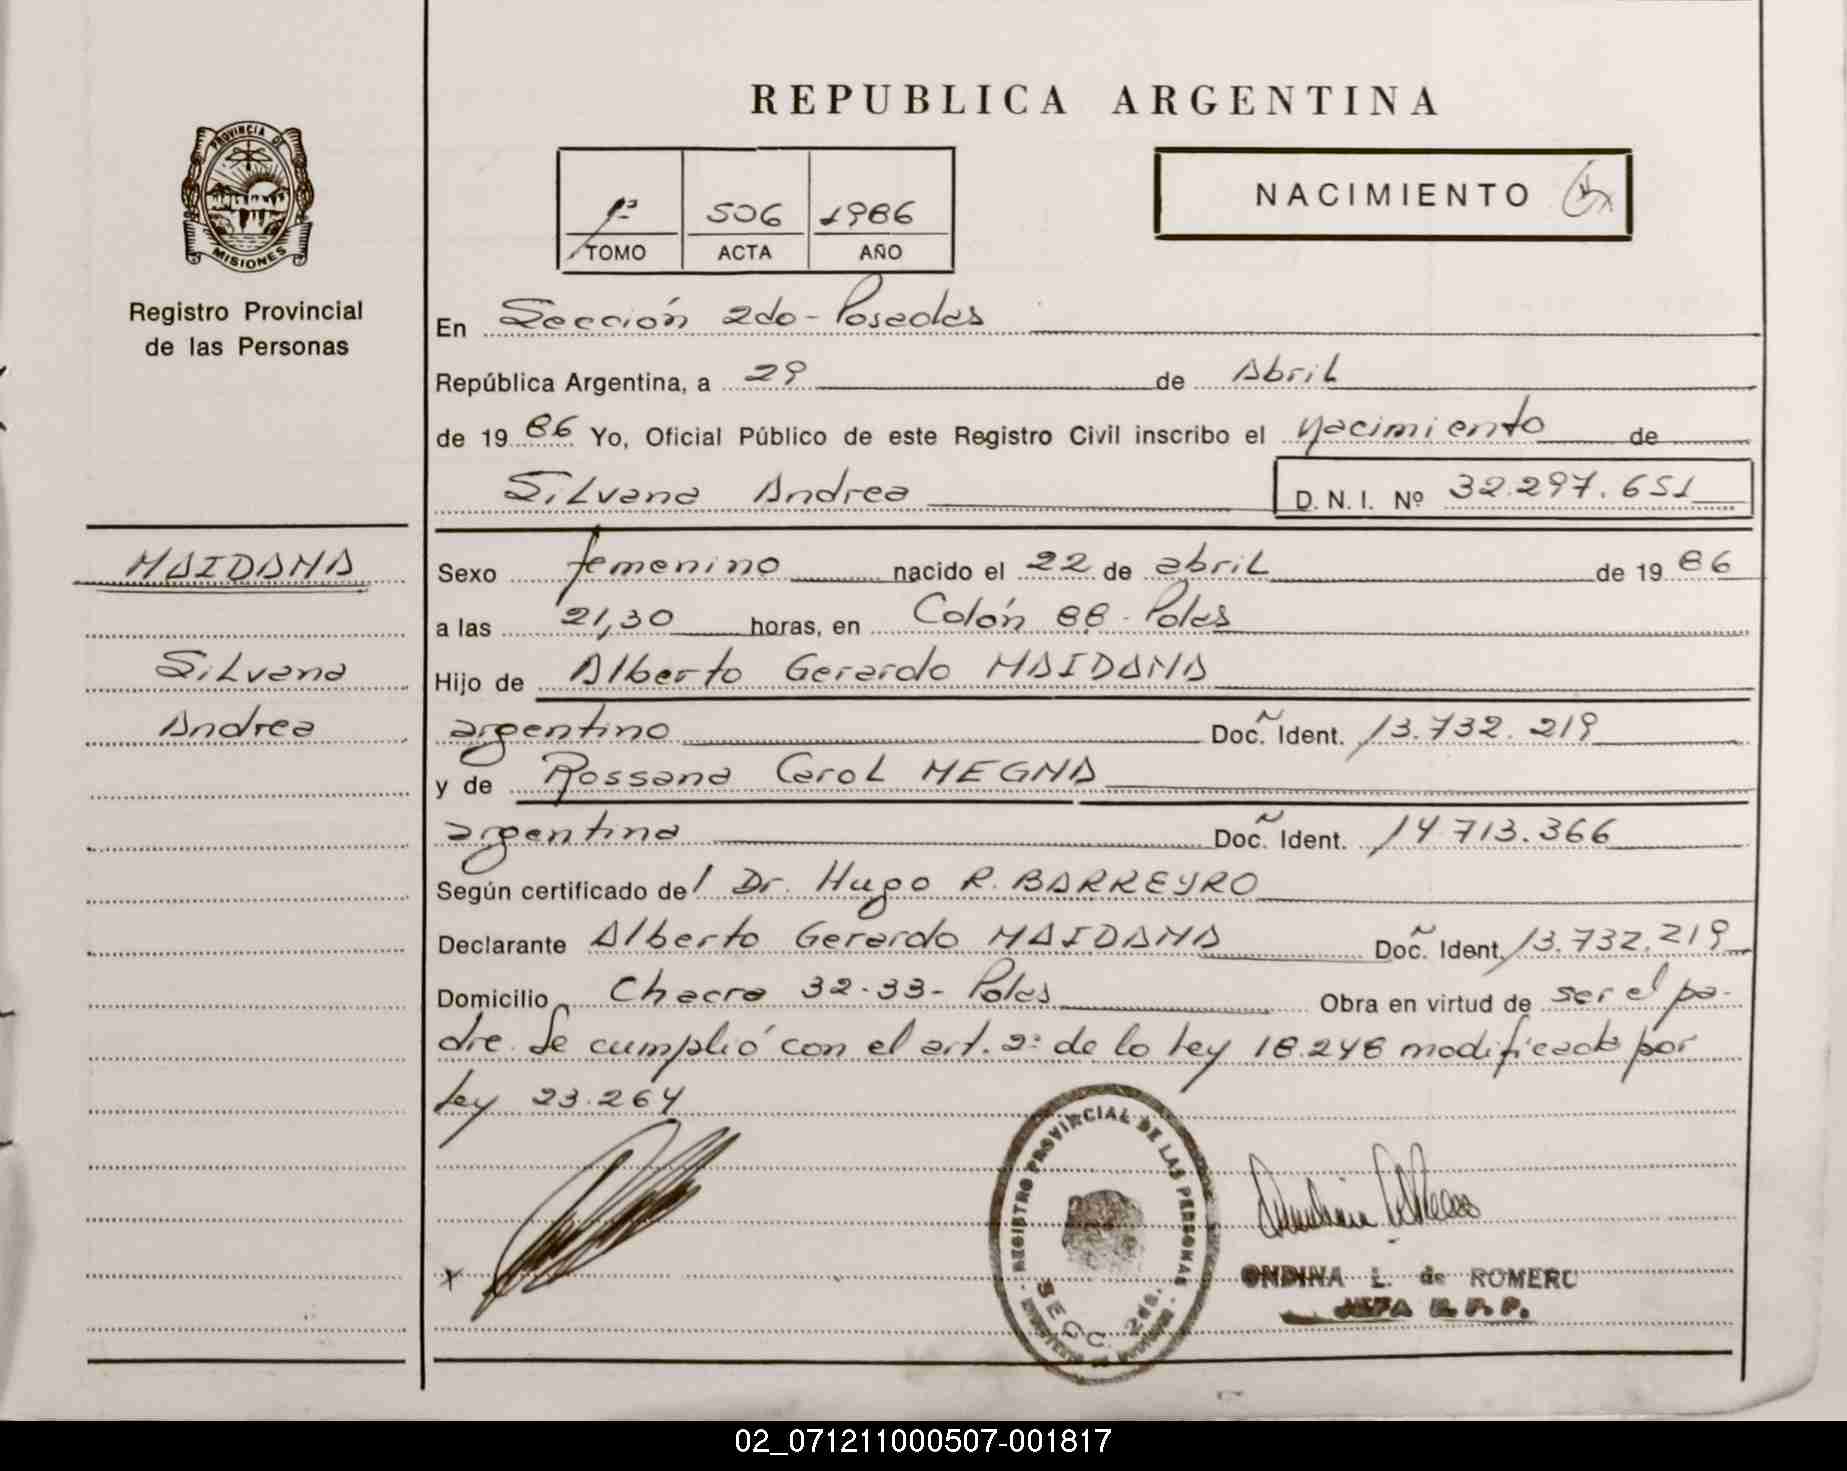 REPUBLICA ARGENTINA
PROVINCIA DE
MISIONES
Registro Provincial
de las Personas
1º 506 1986
TOMO ACTA AÑO
NACIMIENTO
En Sección 2da - Posadas
República Argentina, a 29 de Abril
de 19 86 Yo, Oficial Público de este Registro Civil inscribo el nacimiento de
Silvana Andrea D. N. I. Nº 32.297.651
MAIDANA
Silvana
Andrea
Sexo femenino nacido el 22 de abril de 19 86
a las 21,30 horas, en Colón 88 - Pdas
Hijo de Alberto Gerardo MAIDANA
argentino Doc. Ident. 13.732.219
y de Rossana Carol MEGNA
argentina Doc. Ident. 14.713.366
Según certificado del Dr. Hugo R. BARREYRO
Declarante Alberto Gerardo MAIDANA Doc. Ident. 13.732.219
Domicilio Chacra 32-33- Pdas Obra en virtud de ser el pa-
dre. Se cumplió con el art. 2º de la Ley 18.248 modificada por
Ley 23.264
REGISTRO PROVINCIAL DE LAS PERSONAS
SECC. 2da.
x
ONDINA L. de ROMERO
JEFA R. P. P.
02_071211000507-001817